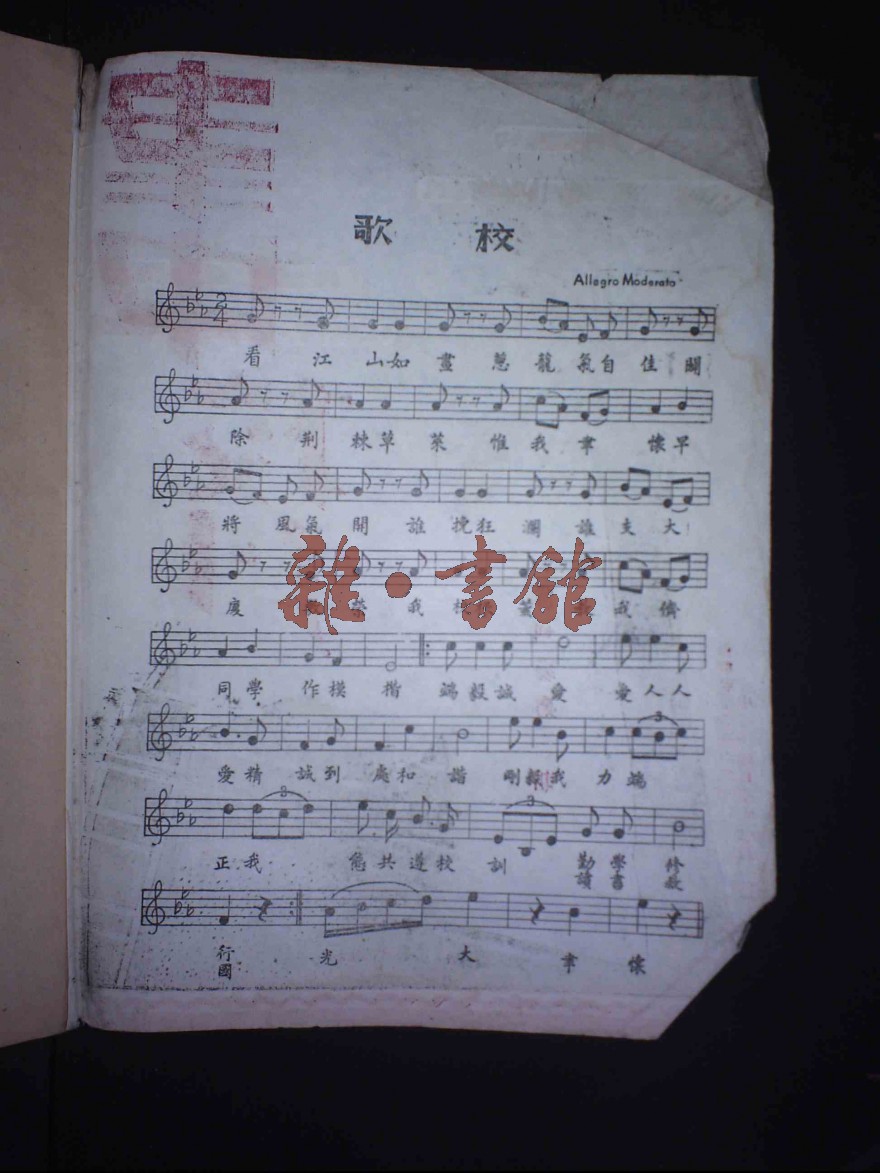 歌校
Allegro Moderato
看江山如畫蔥蘢氣自佳闢
除荆棘草萊惟我聿懷早
將風氣開誰挽狂瀾誰支大
廈 我 我儕
雜·書館
同學作模楷端毅誠愛愛人人
愛精誠到處和諧剛毅我力端
正我 能共遵校訓勤學修
讀書救
行光大聿懷
國